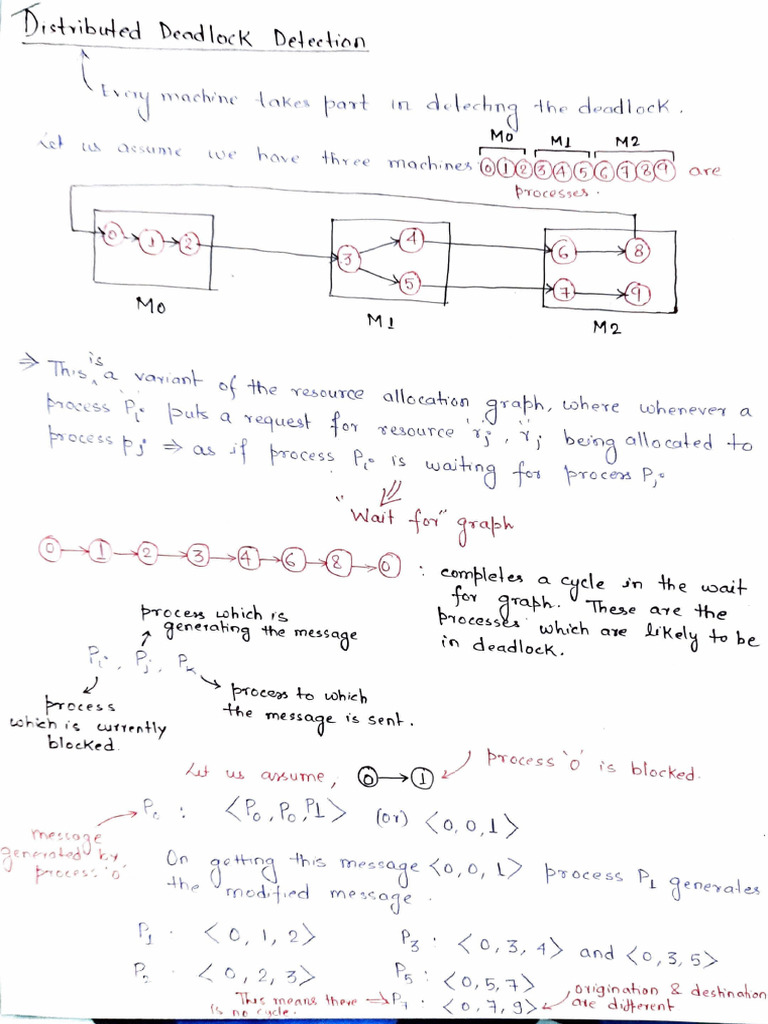 Distributed Deadlock Detection
Every machine takes part in detecting the deadlock.
M0 M1 M2
Let us assume we have three machines 0 1 2 3 4 5 6 7 8 9 are
processes.
0 1 2 3 4 5 6 8 7 9
M0 M1 M2
⇒ This is a variant of the resource allocation graph, where whenever a
process Pi puts a request for resource 'rj', 'rj' being allocated to
process pj ⇒ as if process Pi is waiting for process Pj.
"Wait for" graph
0 → 1 → 2 → 3 → 4 → 6 → 8 → 0 : completes a cycle in the wait
for graph. These are the
processes which are likely to be
in deadlock.
process which is
generating the message
Pi, Pj, Pk
process to which
the message is sent.
process
which is currently
blocked.
Let us assume, 0 → 1 process '0' is blocked.
P0 : <P0, P0, P1> (or) <0, 0, 1>
message
generated by
process '0'
On getting this message <0, 0, 1> process P1 generates
the modified message.
P1 : <0, 1, 2> P3 : <0, 3, 4> and <0, 3, 5>
P2 : <0, 2, 3> P5 : <0, 5, 7>
This means there → P7 : <0, 7, 9> origination & destination
is no cycle. are different